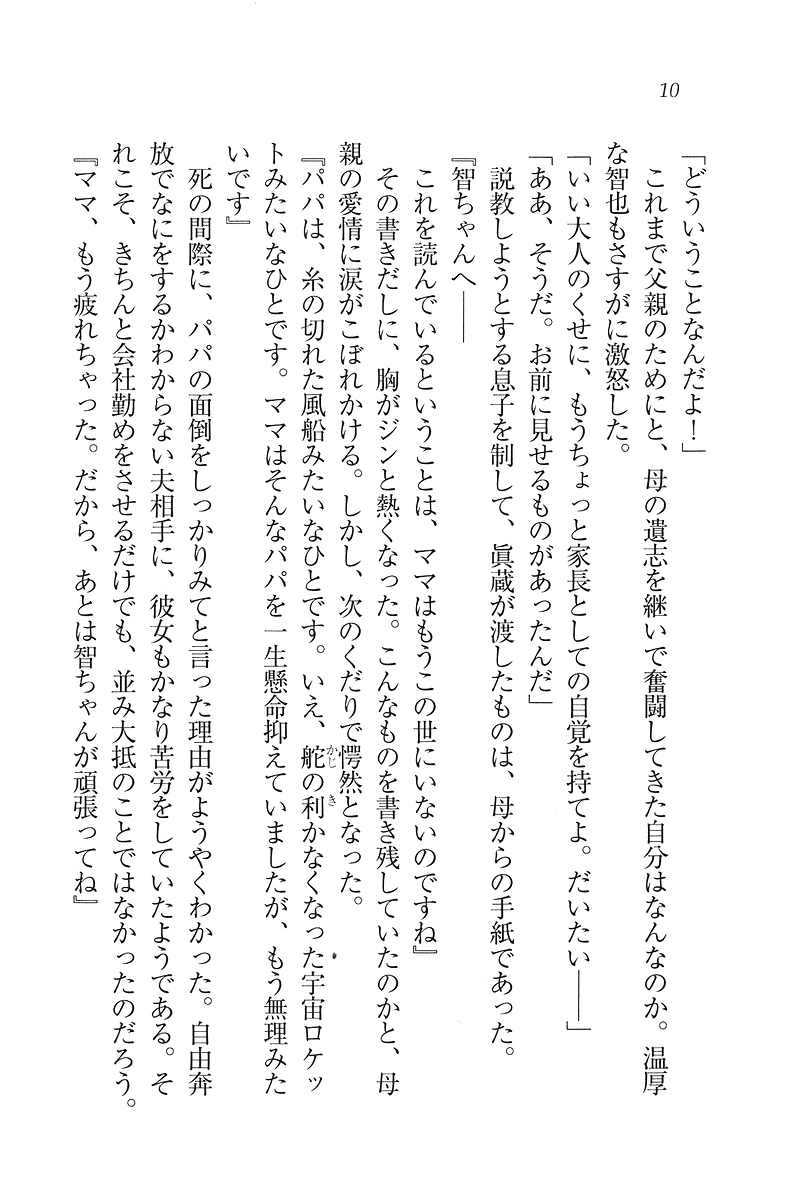 10
「どういうことなんだよ！」
これまで父親のためにと、母の遺志を継いで奮闘してきた自分はなんなのか。温厚
な智也もさすがに激怒した。
「いい大人のくせに、もうちょっと家長としての自覚を持てよ。だいたい――」
「ああ、そうだ。お前に見せるものがあったんだ」
説教しようとする息子を制して、眞蔵が渡したものは、母からの手紙であった。
『智ちゃんへ――
これを読んでいるということは、ママはもうこの世にいないのですね』
その書きだしに、胸がジンと熱くなった。こんなものを書き残していたのかと、母
親の愛情に涙がこぼれかける。しかし、次のくだりで愕然となった。
『パパは、糸の切れた風船みたいなひとです。いえ、舵の利かなくなった宇宙ロケッ
トみたいなひとです。ママはそんなパパを一生懸命抑えていましたが、もう無理みた
いです』
死の間際に、パパの面倒をしっかりみてと言った理由がようやくわかった。自由奔
放でなにをするかわからない夫相手に、彼女もかなり苦労をしていたようである。そ
れこそ、きちんと会社勤めをさせるだけでも、並み大抵のことではなかったのだろう。
『ママ、もう疲れちゃった。だから、あとは智ちゃんが頑張ってね』